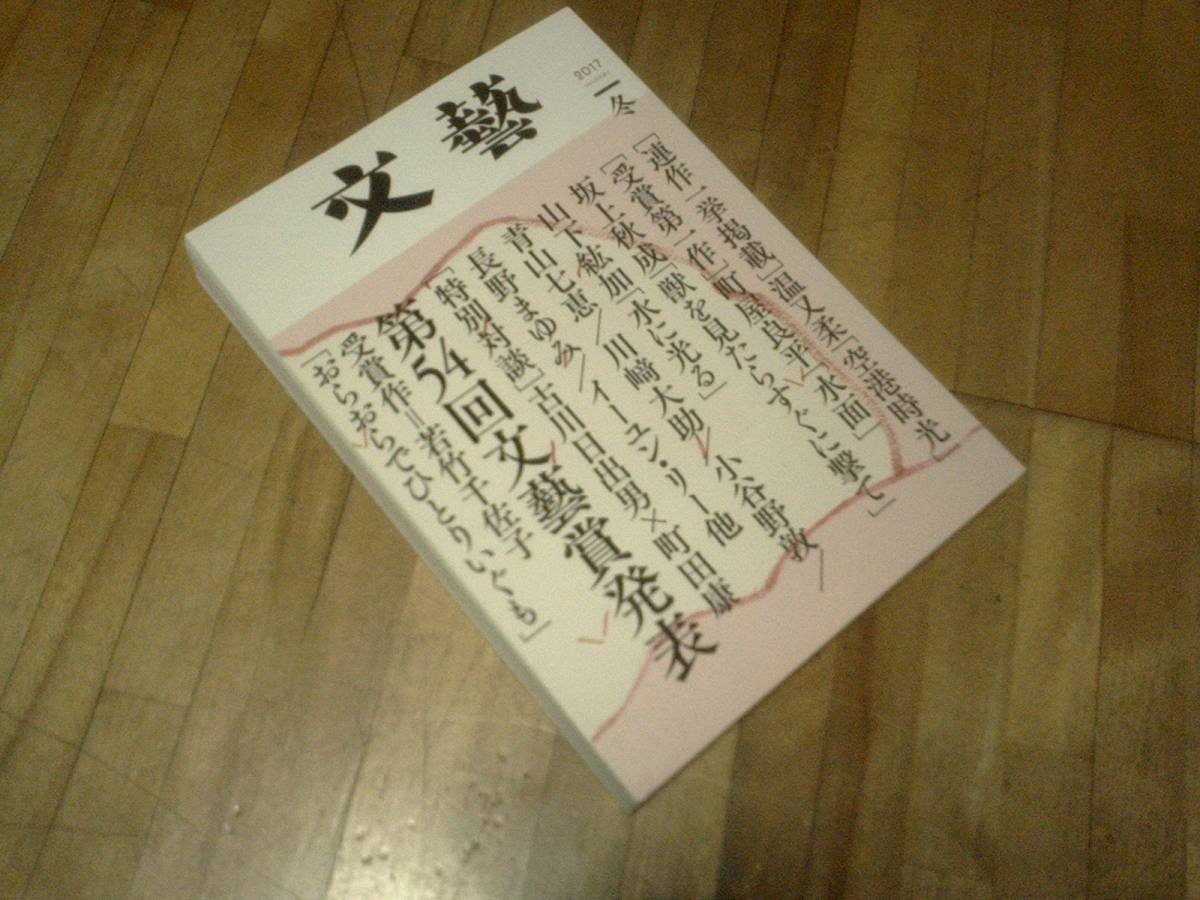 文藝
2017
冬
[連作一挙掲載]温又柔「空港時光」
[受賞第一作]町屋良平「水面」
坂上秋成「獣を見たらすぐに撃て」
山下紘加「水に光る」 小谷野敦/
青山七恵/川﨑大助/
長野まゆみ/イーユン・リー他
[特別対談]古川日出男×町田康
第54回文藝賞発表
受賞作=若竹千佐子
「おらおらでひとりいぐも」